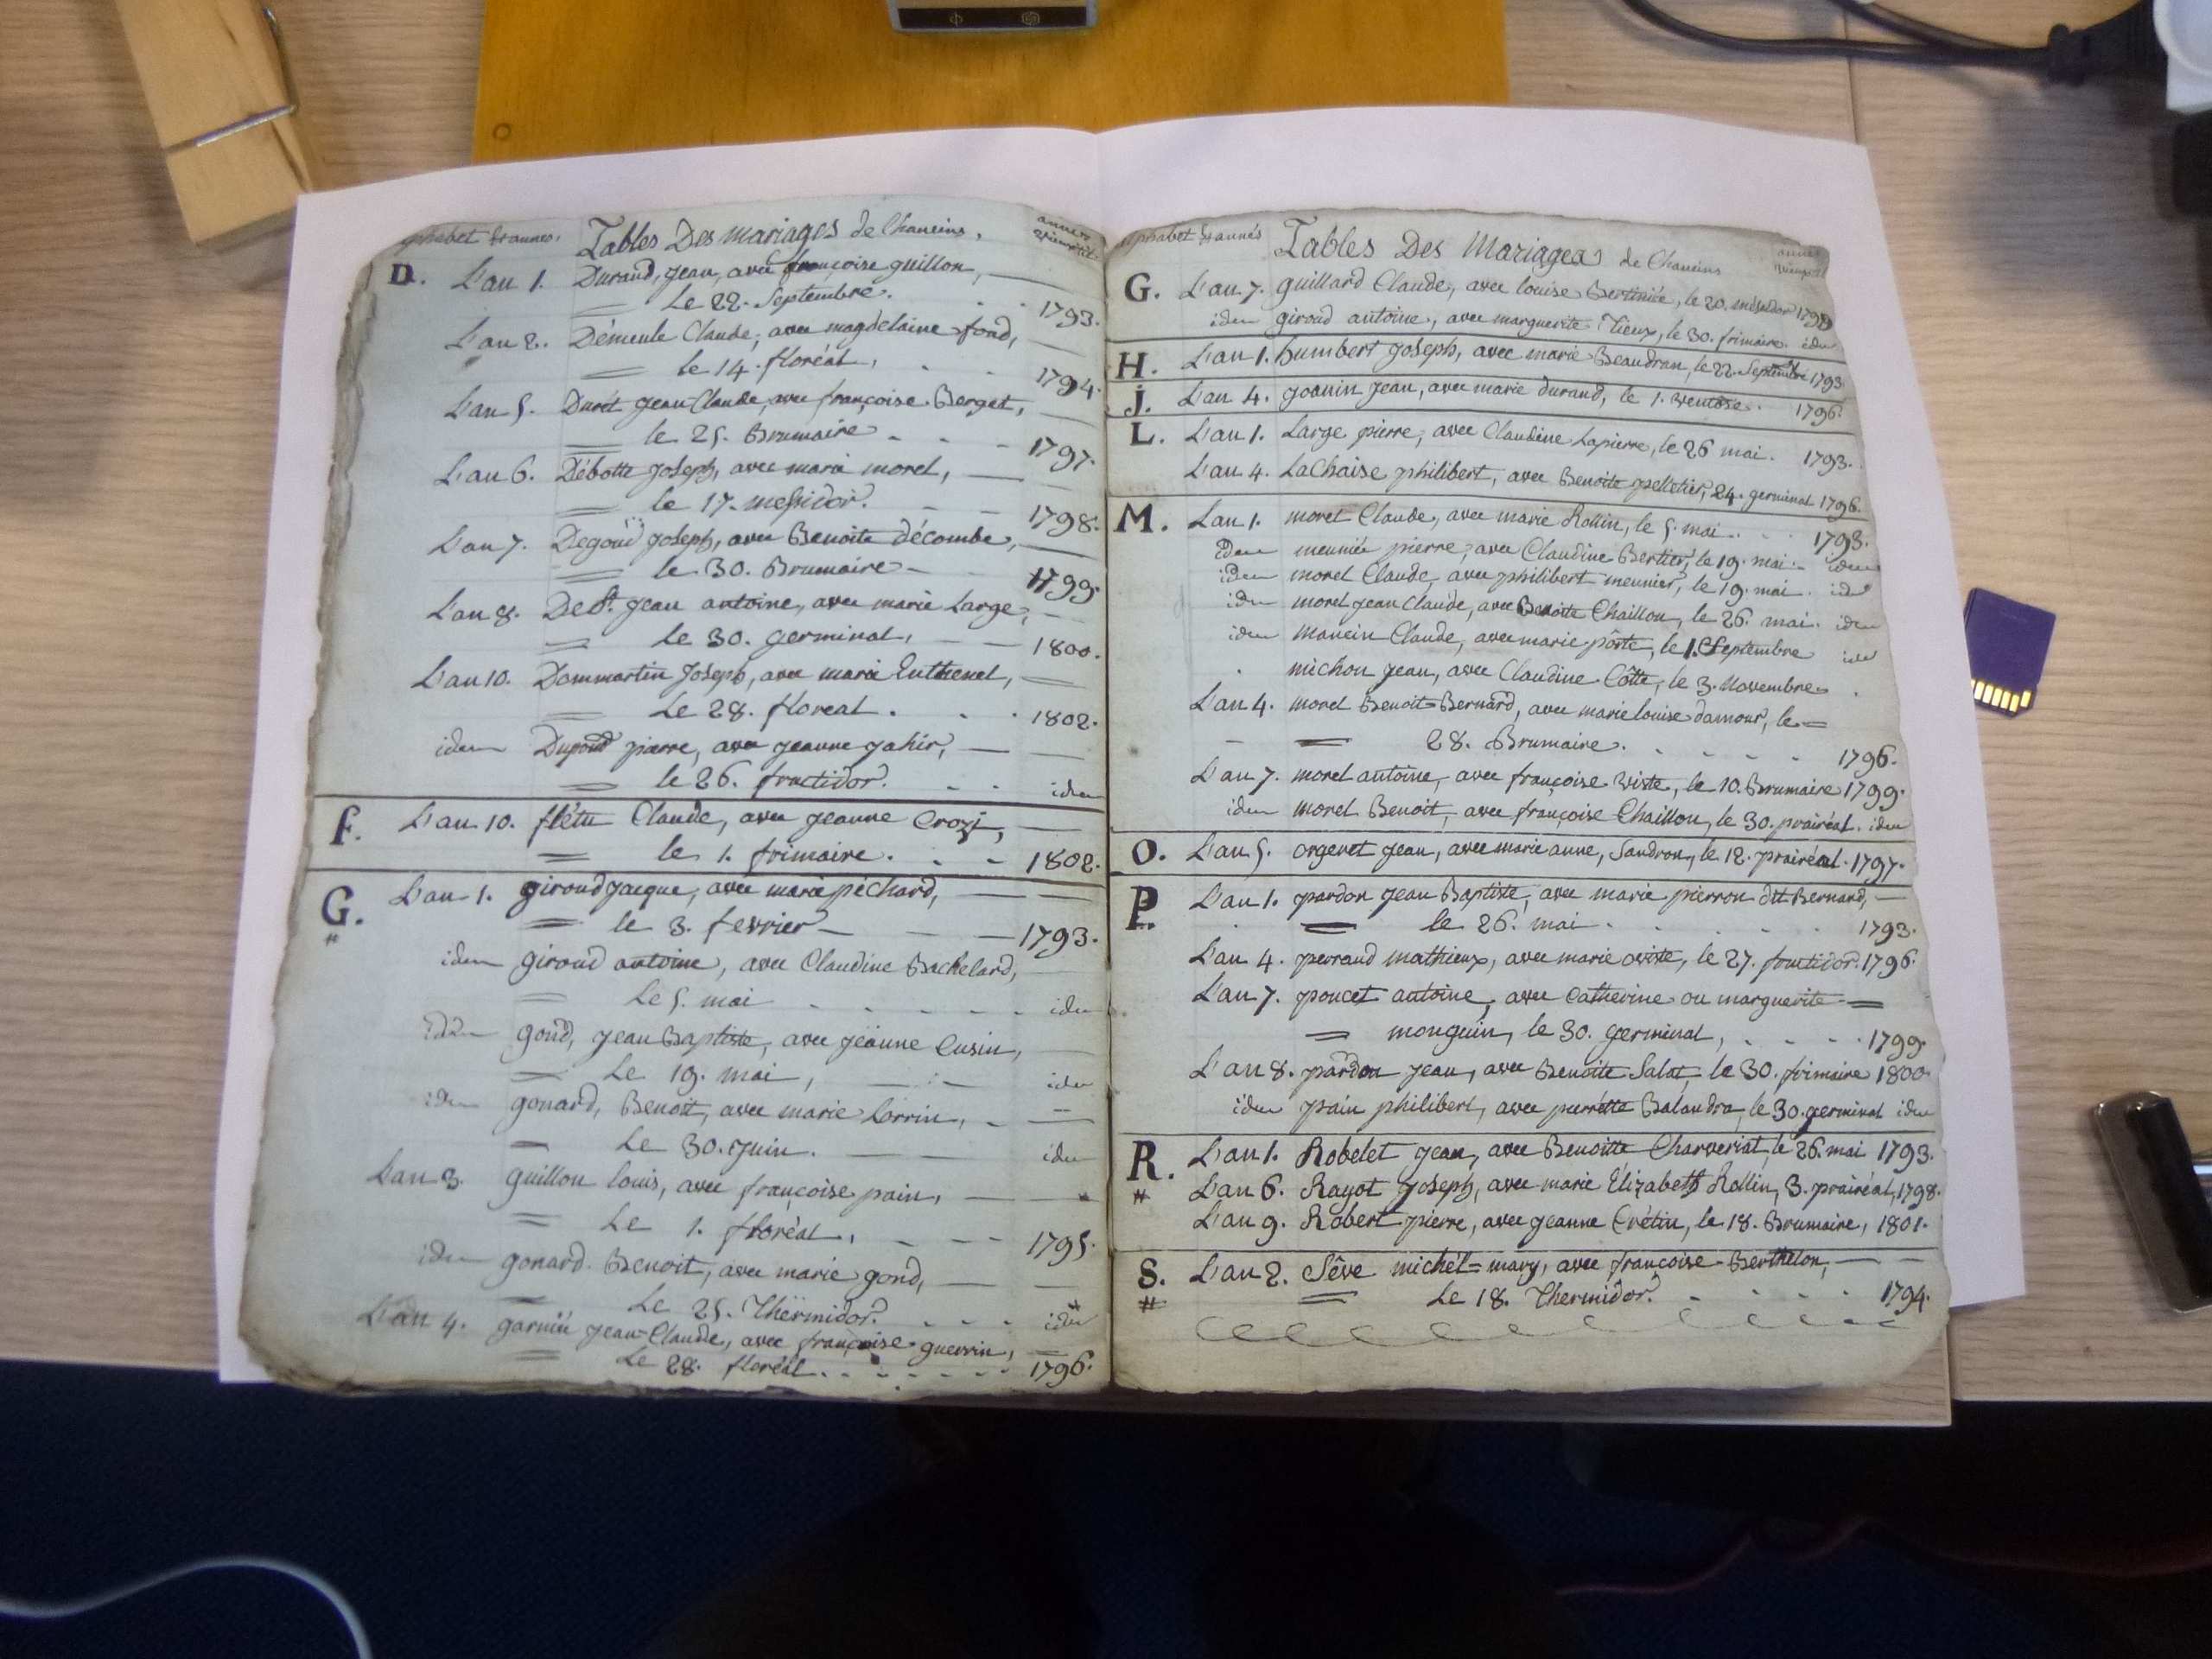 Tables Des mariages de Chaneins.
D. L'an 1. Durand, jean, avec françoise guillon,
Le 22. Septembre. 1793.
L'an 2. Démeule Claude, avec magdelaine fond,
le 14. floréal, 1794.
L'an 5. Durét jean Claude, avec françoise Berget,
le 25. Brumaire 1797.
L'an 6. Débotte joseph, avec marie morel,
le 17. messidor. 1798.
L'an 7. joseph, avec Benoite décombe,
le 30. Brumaire 1799.
L'an 8. De St. jean antoine, avec marie Large,
le 30. germinal, 1800.
L'an 10. Dommartin Joseph, avec marie
Le 28. floreal. 1802.
idem pierre, avec jeanne
le 26. fructidor. idem
f. L'an 10. flétu Claude, avec jeanne Crozi,
le 1. frimaire. 1802.
G. L'an 1. giroud jacque, avec marie péchard,
le 3. fevrier 1793.
idem giroud antoine, avec Claudine Bachelard,
Le 5. mai idem
idem gond, jean Baptiste, avec jeanne Cusin,
Le 19. mai, idem
idem gonard, Benoit, avec marie Lorrin,
Le 30. juin. idem
L'an 3. guillon louis, avec françoise pain,
Le 1. floréal, 1795.
idem gonard Benoit, avec marie gond,
Le 25. Thermidor. idem
L'an 4. jean-Claude, avec françoise guerrin,
Le 28. floréal. 1796.
Tables Des Mariages de Chaneins
G. L'an 7. guillard Claude, avec louise le 20. messidor
idem giroud antoine, avec marguerite le 30. frimaire. idem
H. L'an 1. humbert joseph, avec marie Beaudran, le 22. Septembre 1793
J. L'an 4. joanin jean, avec marie durand, le 1. ventose. 1796.
L. L'an 1. Large pierre, avec Claudine Lapierre, le 26 mai. 1793.
L'an 4. LaChaise philibert, avec Benoite pelletier, 24. germinal 1796.
M. L'an 1. morel Claude, avec marie Rollin, le 5. mai. 1793.
idem meunier pierre, avec Claudine Bertier, le 19. mai. idem
idem morel Claude, avec philibert meunier, le 19. mai. idem
idem morel jean Claude, avec Benoite Chaillon, le 26. mai. idem
idem mancin Claude, avec marie pôste, le 1. Septembre idem
michon jean, avec Claudine Côtte, le 3. Novembre.
L'an 4. morel Benoit=Bernard, avec marie louise damour, le=
28. Brumaire. 1796.
L'an 7. morel antoine, avec françoise viste, le 10. Brumaire 1799.
idem morel Benoit, avec françoise Chaillon, le 30. prairéal. idem
O. L'an 5. orgeret jean, avec marie anne, Sandron, le 12. prairéal. 1797.
P. L'an 1. pardon jean Baptiste, avec marie pierron dit Bernard,
le 26. mai. 1793.
L'an 4. perrand mathieux, avec marie viste, le 27. fructidor. 1796.
L'an 7. poucet antoine, avec Catherine ou marguerite=
monguin, le 30. germinal, 1799.
L'an 8. pardon jean, avec Benoite Salat, le 30. frimaire 1800.
idem pain philibert, avec pierrette Balandra, le 30. germinal idem
R. L'an 1. Robelet jean, avec Benoitte Charveriat, le 26. mai 1793.
L'an 6. Rayot joseph, avec marie Élizabeth Rollin, 3. prairéal, 1798.
L'an 9. Robert pierre, avec jeanne Crétin, le 18. Brumaire, 1801.
S. L'an 2. Sêve michel=mary, avec françoise Berthelon,
Le 18. Thermidor. 1794.